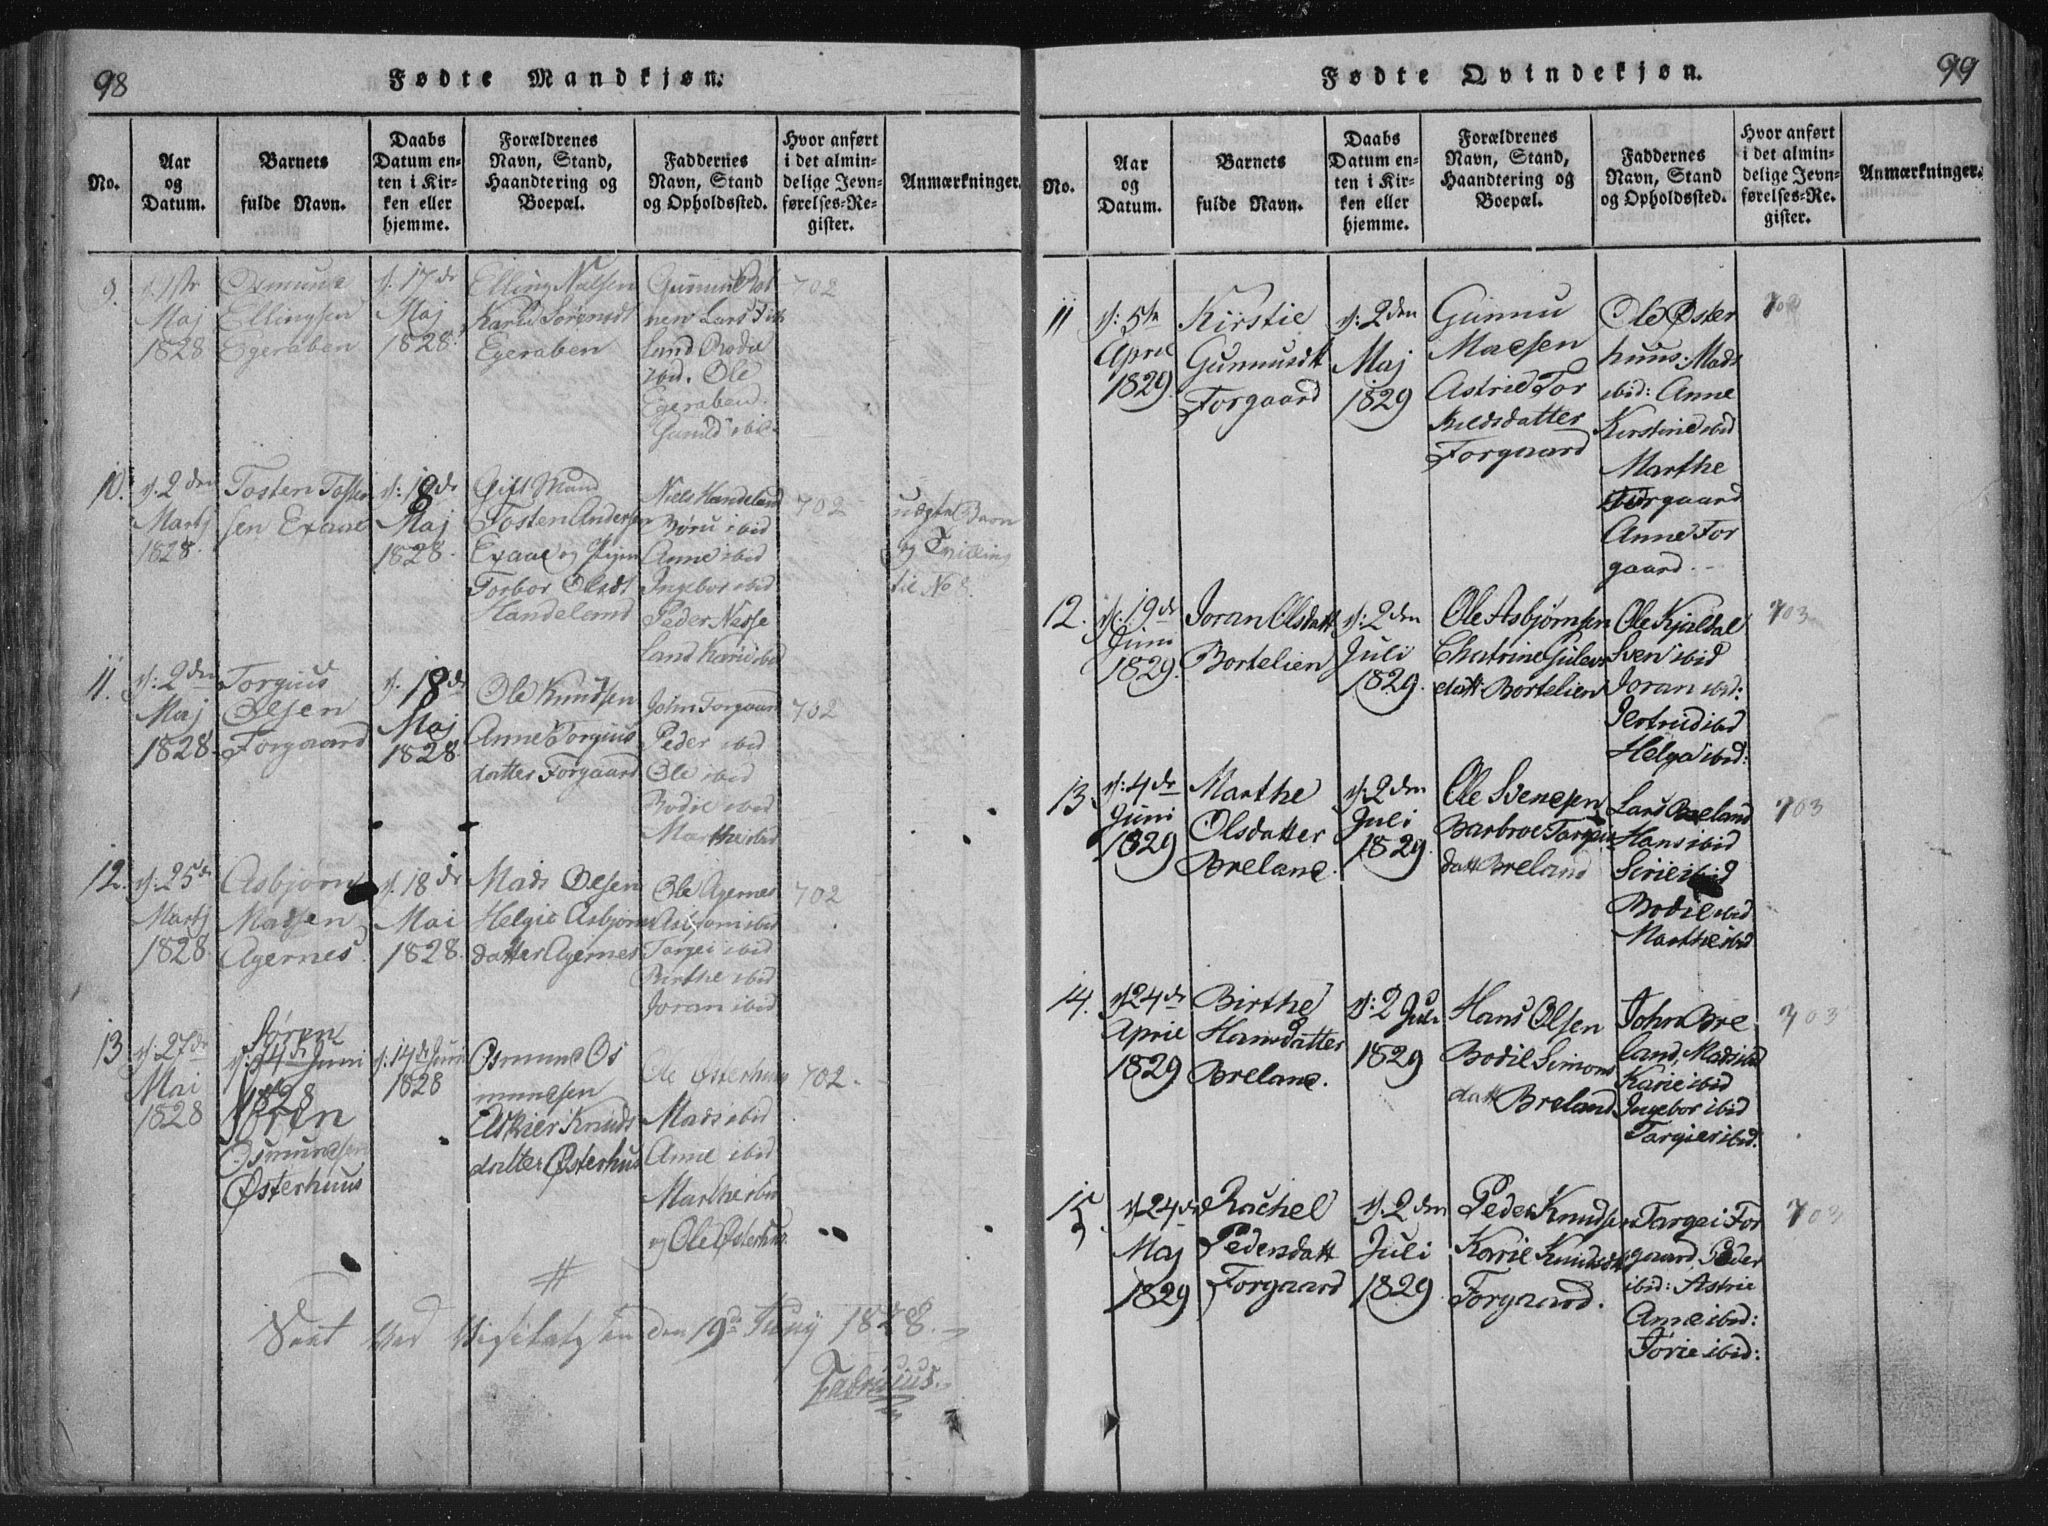 98
Fødte Mandkjøn.
No.
Aar
og
Datum.
Barnets
fulde Navn.
Daabs
Datum en-
ten i Kir-
ken eller
hjemme.
Forældrenes
Navn, Stand,
Haandtering og
Boepæl.
Faddernes
Navn, Stand
og Opholdssted.
Hvor anført
i det almin-
delige Jevn-
førelses-Re-
gister.
Anmærkninger.
9.
Maj
1828
Osmund
Ellingsen
Egeraben
d: 17de
Maj
1828
Elling
Egeraben
Lars
land Bodil
ibid. Ole
Egeraben
Gunild ibid
702
10.
d: 2den
Martj
1828.
Tosten Tosten
sen Exaae
d: 18de
Maj
1828.
Gift Mand
Tosten Andersen
Exaae og Pigen
Torbor Olsdt
Handeland
Niels Handeland
ibid
Anne ibid
Ingebor ibid
Peder Nesse
land Karie ibid
702
uægte Barn
og Tvilling
til No 8.
11.
d: 2den
Maj
1828.
Torgius
Olsen
Forgaard
d. 18de
Maj
1828
Ole Knudsen
Anne Torgius
datter Forgaard
John Forgaard
Peder ibid
Ole ibid
Bodil ibid
Marthe ibid
702
12.
d: 25de
Martj
1828
Asbjørn
Madsen
Agernes
d. 18de
Mai
1828.
Mads Olsen
Helgie Asbjørns
datter Agernes
Ole Agernes
ibid
Targei ibid
Birthe ibid
Joran ibid
702
13
d: 27de
Mai
1828
Søren
d: 14de Juni
1828
Søren
Osmundsen
Østerhuus
d: 14de Juni
1828
Osmund Os
mundsen
Knuds
datter Østerhus
Ole Østerhuus
Mads ibid
Anne ibid
Marthe ibid
og Ole Østerhuus
702.
#
Seet ved Visitatzen den 19de Junij 1828.
Fabricius.
99
Fødte Qvindekjøn.
No.
Aar
og
Datum.
Barnets
fulde Navn.
Daabs
Datum en-
ten i Kir-
ken eller
hjemme.
Forældrenes
Navn, Stand,
Haandtering og
Boepæl.
Faddernes
Navn, Stand
og Opholdssted.
Hvor anført
i det almin-
delige Jevn-
førelses-Re-
gister.
Anmærkninger.
11
d: 5te
April
1829
Kirstie
Gunnusdtt
Forgaard
d: 2den
Maj
1829
Gunnu
Madsen
Astrid Tor
kieldsdatter
Forgaard
Ole Øster
huus: Mads
ibid: Anne
Kirstine ibid
Marthe
Forgaard
Anne For
gaard.
702
12.
d. 19de
Juni
1829.
Joran Olsdatt
Bortelien
d: 2den
Juli
1829.
Ole Asbjørnsen
Chatrine
datt Bortelien
Ole Kjøldal
Sven ibid
Joran ibid:
Jertrud ibid
Helga ibid:
703
13.
d: 4de
Juni
1829
Marthe
Olsdatter
Breland.
d: 2den
Juli
1829.
Ole Svendsen
Barbroe
datt Breland
Lars Breland
Hans ibid
Sirie ibid
Bodil ibid
Marthe ibid
703
14.
d 24de
April
1829
Birthe
Hansdatter
Breland.
d: 2 Juli
1829
Hans Olsen
Bodil Simons
datt Breland
John Bre
land, Mads ibid
Karie ibid
Ingebor ibid
Targier ibid.
703
15.
d 24de
Maj
1829
Rachel
Pedersdatt
Forgaard
d. 2den
Juli
1829
Peder Knudsen
Karie Knudsdt
Forgaard.
Targei For
gaard, Peder
ibid: Astrie
Anne ibid:
Tørie ibid:
703